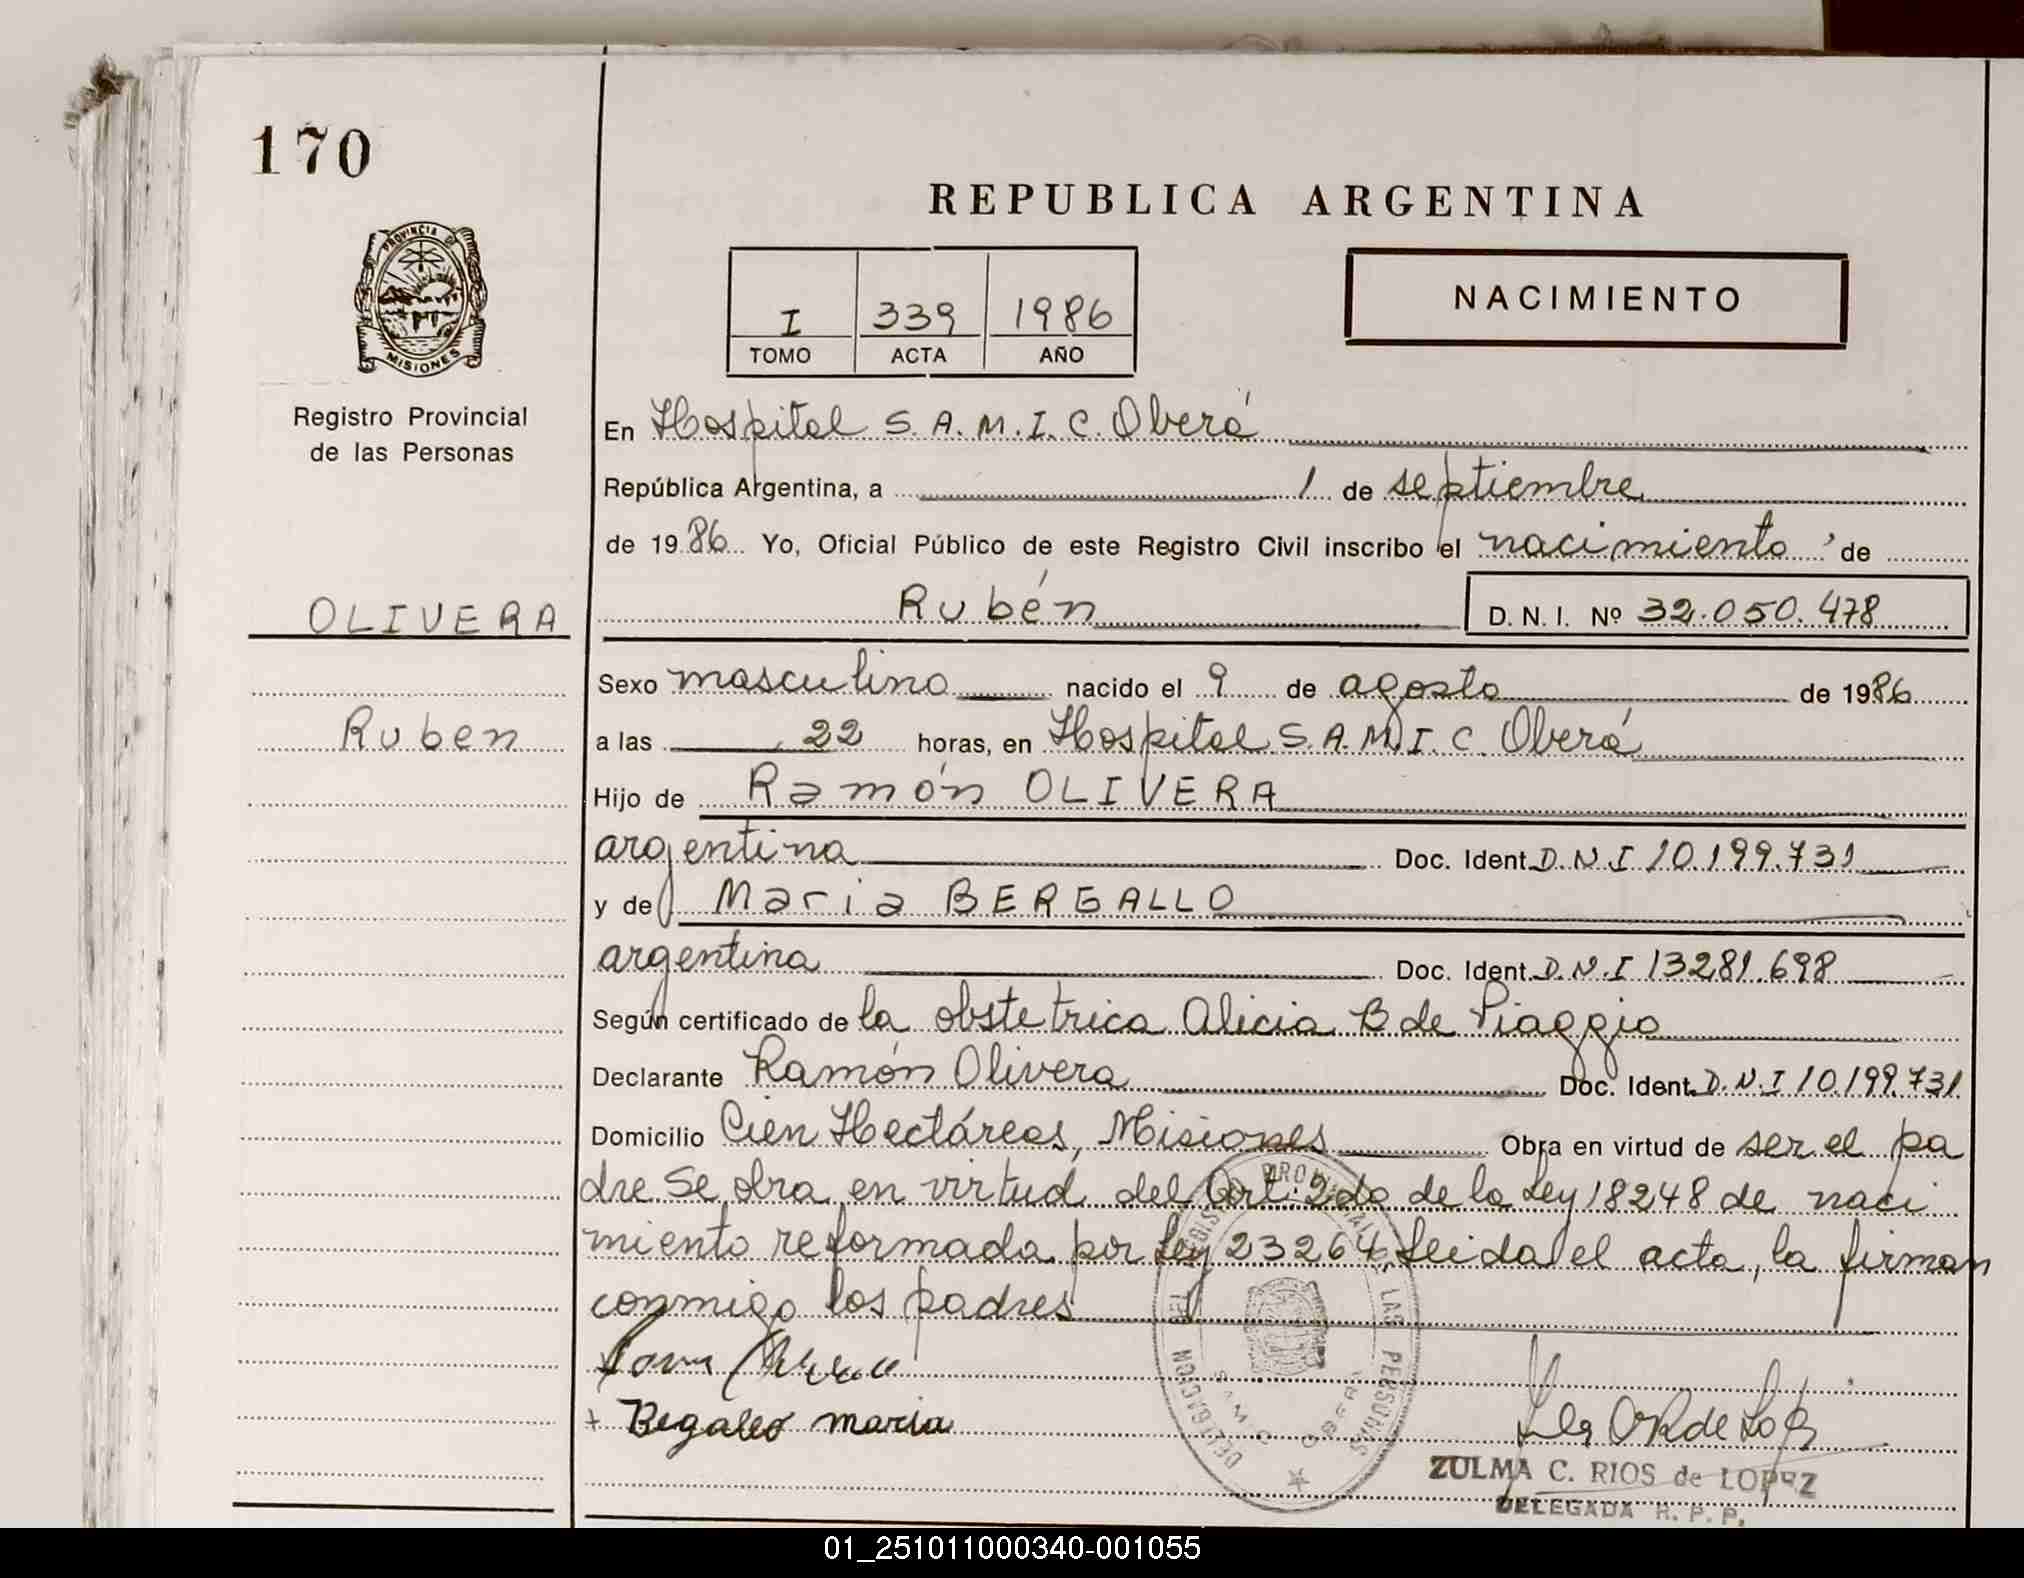 170
REPUBLICA ARGENTINA
PROVINCIA DE
MISIONES
I 339 1986
TOMO ACTA AÑO
NACIMIENTO
Registro Provincial
de las Personas
En Hospital S.A.M.I.C. Oberá
República Argentina, a 1 de septiembre
de 1986 Yo, Oficial Público de este Registro Civil inscribo el nacimiento de
OLIVERA
Rubén
D.N.I. Nº 32.050.478
Sexo masculino nacido el 9 de agosto de 1986
Ruben
a las 22 horas, en Hospital S.A.M.I.C. Oberá
Hijo de Ramón OLIVERA
argentina Doc. Ident. D.N.I 10.199.731
y de Maria BERGALLO
argentina Doc. Ident. D.N.I 13281.698
Según certificado de la obstetrica Alicia B de Piaggio
Declarante Ramón Olivera Doc. Ident. D.N.I 10.199.731
Domicilio Cien Hectáreas, Misiones Obra en virtud de ser el pa
dre Se obra en virtud del Art. 2do de la Ley 18248 de naci
miento reformada por Ley 23264 Leida el acta, la firman
conmigo los padres
+ Begaleo maria
DELEGACION DEL REGISTRO PROVINCIAL DE LAS PERSONAS
SAMIC OBERA
ZULMA C. RIOS de LOPEZ
DELEGADA R. P. P.
01_251011000340-001055